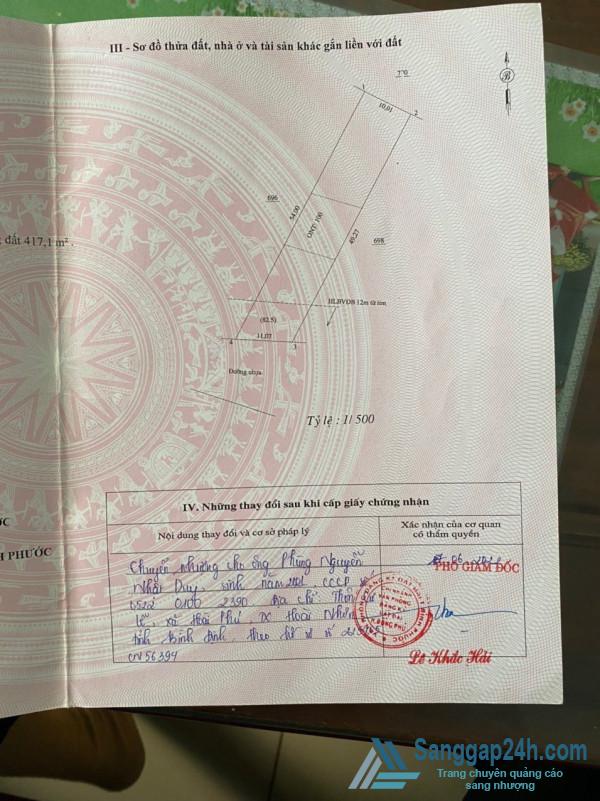 III - Sơ đồ thửa đất, nhà ở và tài sản khác gắn liền với đất
B
1
10,01
2
696
54.00
ONT 100
49.27
698
đất 417,1 m².
HLBVĐB 12m từ tim
(82.5)
4
11.03
3
Đường nhựa
Tỷ lệ : 1/ 500
IV. Những thay đổi sau khi cấp giấy chứng nhận
Nội dung thay đổi và cơ sở pháp lý
Xác nhận của cơ quan có thẩm quyền
H PHƯỚC
Chuyển nhượng cho ông Phùng Nguyễn
Nhật Duy, sinh năm CCCD
0106 2390 địa chỉ: Thôn
lễ, xã Hoài Phú, TX Hoài Nhơn
tỉnh Bình Định, theo hồ sơ số
CN 56394
PHÓ GIÁM ĐỐC
VĂN PHÒNG
ĐĂNG KÝ
ĐẤT ĐAI
Lê Khắc Hải
Sanggap24h.com
Trang chuyên quảng cáo
sang nhượng